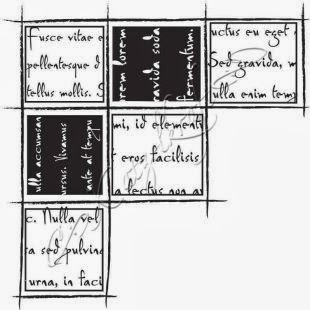 Fusce vitae e
pellentesque d
tellus mollis. S
rem lorem
ravida soda
fermentum.
uctus eu eget
Sed gravida, m
ulla enim temp
ulla accumsan
ursus. Vivamus
ante at tempu
mi, id element
eros facilisis
a lectus non a
c. Nulla vel
a sed pulvin
urna, in faci